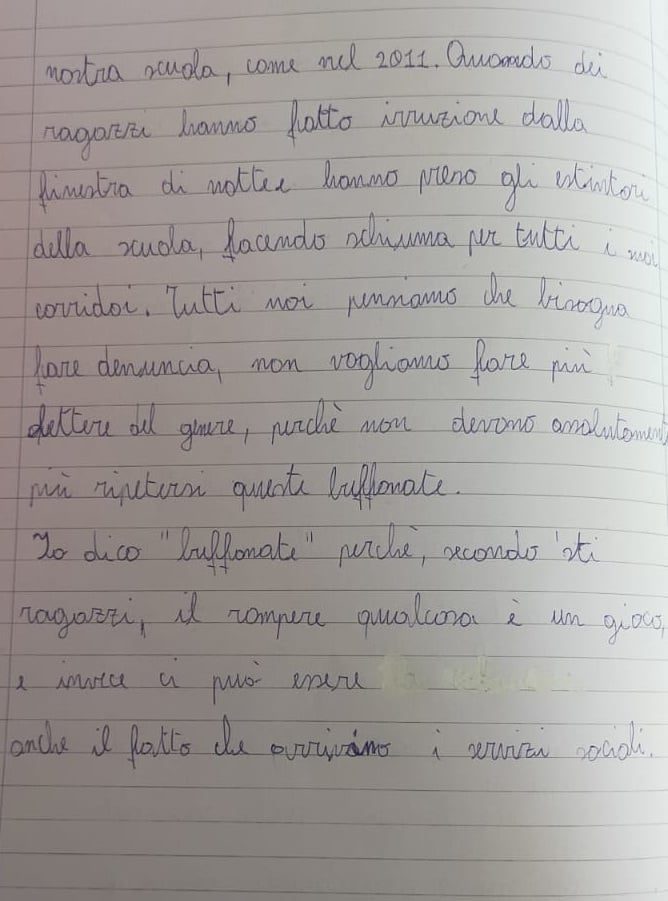 nostra scuola, come nel 2011. Quando dei
ragazzi hanno fatto irruzione dalla
finestra di notte e hanno preso gli estintori
della scuola, facendo schiuma per tutti i
corridoi. Tutti noi pensiamo che bisogna
fare denuncia, non vogliamo fare più
lettere del genere, perchè non devono assolutament
più ripetersi queste buffonate.
Io dico "buffonate" perchè, secondo 'sti
ragazzi, il rompere qualcosa è un gioco,
e invece ci può essere
anche il fatto che arrivino i servizi sociali.